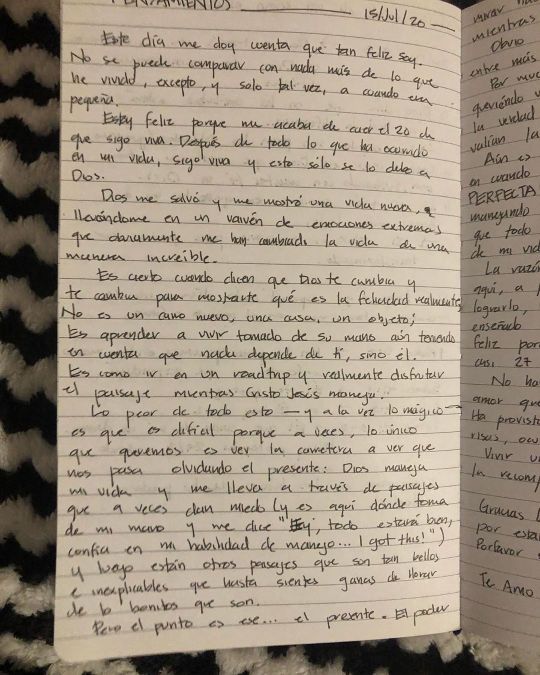 PENSAMIENTOS
15/Jul/20
Este día me doy cuenta que tan feliz soy.
No se puede comparar con nada más de lo que
he vivido, excepto, y solo tal vez, a cuando era
pequeña.
Estoy feliz porque me acaba de caer el 20 de
que sigo viva. Después de todo lo que ha ocurrido
en mi vida, sigo viva y esto sólo se lo debo a
Dios.
Dios me salvó y me mostró una vida nueva,
llevándome en un vaivén de emociones extremas
que claramente me han cambiado la vida de una
manera increíble.
Es cierto cuando dicen que Dios te cambia y
te cambia para mostrarte qué es la felicidad realmente,
No es un carro nuevo, una casa, un objeto;
Es aprender a vivir tomado de su mano aún teniendo
en cuenta que nada depende de ti, sino él.
Es como ir en un roadtrip y realmente disfrutar
el paisaje mientras Cristo Jesús maneja.
Lo peor de todo esto — y a la vez lo mágico —
es que es difícil porque a veces, lo único
que queremos es ver la carretera a ver que
nos pasa olvidando el presente: Dios maneja
mi vida y me lleva a través de paisajes
que a veces dan miedo (y es aquí dónde toma
de mi mano y me dice "Ey, todo estará bien,
confía en mi habilidad de manejo... I got this!")
y luego están otros paisajes que son tan bellos
e inexplicables que hasta sientes ganas de llorar
de lo bonitos que son.
Pero el punto es ese... el presente. El poder
mirar
mientras
Obvio
entre más
Por muc
queriéndo
la verdad
valían la
Aún es
en cuando
PERFECTA
manejando
que todo
de mi vid
La razón
aquí, a
lograrlo,
enseñado
feliz por
casi 27
No ha
amor que
Ha provisto
risas, ocu
Vivir u
la recomp
Gracias
por esta
Porfavor
Te Amo